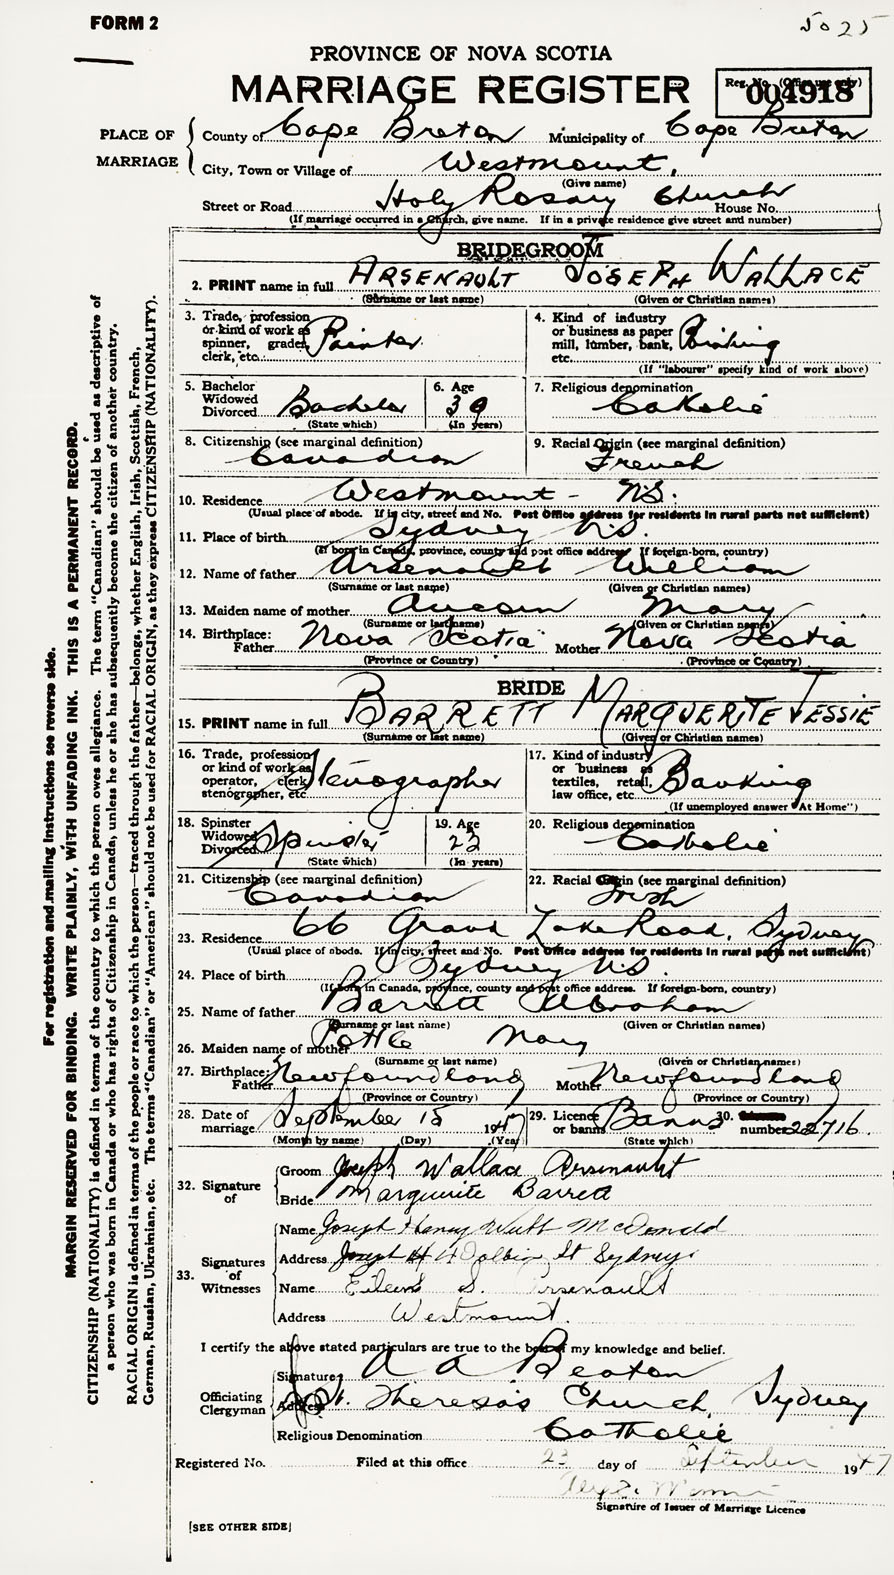 FORM 2
5025
PROVINCE OF NOVA SCOTIA
MARRIAGE REGISTER
Reg. No. (Office use only)
004918
PLACE OF MARRIAGE
County of Cape Breton Municipality of Cape Breton
City, Town or Village of Westmount,
(Give name)
Street or Road Holy Rosary Church House No.
(If marriage occurred in a Church, give name. If in a private residence give street and number)
BRIDEGROOM
2. PRINT name in full ARSENAULT JOSEPH WALLACE
(Surname or last name) (Given or Christian names)
3. Trade, profession or kind of work as spinner, grader, clerk, etc. Painter
4. Kind of industry or business as paper mill, lumber, bank, etc.
(If "labourer" specify kind of work above)
5. Bachelor Widowed Divorced Bachelor
(State which)
6. Age 39
(In years)
7. Religious denomination Catholic
8. Citizenship (see marginal definition) Canadian
9. Racial Origin (see marginal definition) French
10. Residence Westmount - N.S.
(Usual place of abode. If in city, street and No. Post Office address for residents in rural parts not sufficient)
11. Place of birth Sydney N.S.
(If born in Canada, province, county and post office address. If foreign-born, country)
12. Name of father Arsenault William
(Surname or last name) (Given or Christian names)
13. Maiden name of mother Aucoin Mary
(Surname or last name) (Given or Christian names)
14. Birthplace: Father Nova Scotia Mother Nova Scotia
(Province or Country) (Province or Country)
BRIDE
15. PRINT name in full BARRETT MARGUERITE JESSIE
(Surname or last name) (Given or Christian names)
16. Trade, profession or kind of work as operator, clerk, stenographer, etc. Stenographer
17. Kind of industry or business as textiles, retail, law office, etc. Banking
(If unemployed answer "At Home")
18. Spinster Widowed Divorced Spinster
(State which)
19. Age 23
(In years)
20. Religious denomination Catholic
21. Citizenship (see marginal definition) Canadian
22. Racial Origin (see marginal definition) Irish
23. Residence 66 Grand Lake Road, Sydney
(Usual place of abode. If in city, street and No. Post Office address for residents in rural parts not sufficient)
24. Place of birth Sydney N.S.
(If born in Canada, province, county and post office address. If foreign-born, country)
25. Name of father Barrett Abraham
(Surname or last name) (Given or Christian names)
26. Maiden name of mother Pottle Mary
(Surname or last name) (Given or Christian names)
27. Birthplace: Father Newfoundland Mother Newfoundland
(Province or Country) (Province or Country)
28. Date of marriage September 15 1947
(Month by name) (Day) (Year)
29. Licence or banns Banns
(State which)
30. number 22716.
32. Signature of
Groom Joseph Wallace Arsenault
Bride Marguerite Barrett
33. Signatures of Witnesses
Name Joseph Henry McDonald
Address St Sydney
Name Eileen S. Arsenault
Address Westmount.
I certify the above stated particulars are true to the best of my knowledge and belief.
Officiating Clergyman
Signature A A Beaton
Address St. Theresa's Church, Sydney
Religious Denomination Catholic
Registered No. Filed at this office 23 day of September 1947
Signature of Issuer of Marriage Licence
[SEE OTHER SIDE]
For registration and mailing instructions see reverse side.
MARGIN RESERVED FOR BINDING. WRITE PLAINLY, WITH UNFADING INK. THIS IS A PERMANENT RECORD.
CITIZENSHIP (NATIONALITY) is defined in terms of the country to which the person owes allegiance. The term "Canadian" should be used as descriptive of
a person who was born in Canada or who has rights of Citizenship in Canada, unless he or she has subsequently become the citizen of another country.
RACIAL ORIGIN is defined in terms of the people or race to which the person—traced through the father—belongs, whether English, Irish, Scottish, French,
German, Russian, Ukrainian, etc. The terms "Canadian" or "American" should not be used for RACIAL ORIGIN, as they express CITIZENSHIP (NATIONALITY).